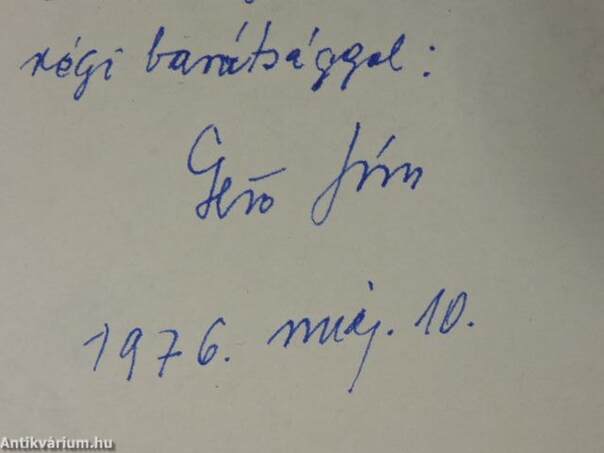 régi barátsággal:
Gerő János
1976. máj. 10.
Antikvárium.hu